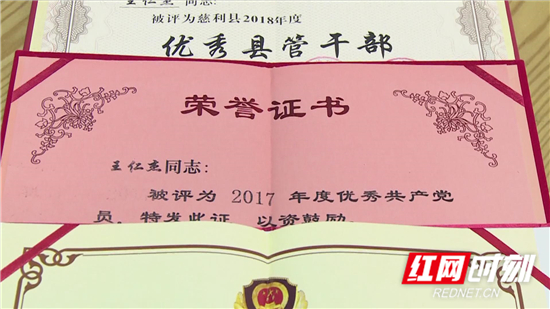 王仁杰同志:
被评为慈利县2018年度
优秀县管干部
荣誉证书
王仁杰同志:
被评为 2017 年度优秀共产党
员，特发此证，以资鼓励。
红网时刻
REDNET.CN